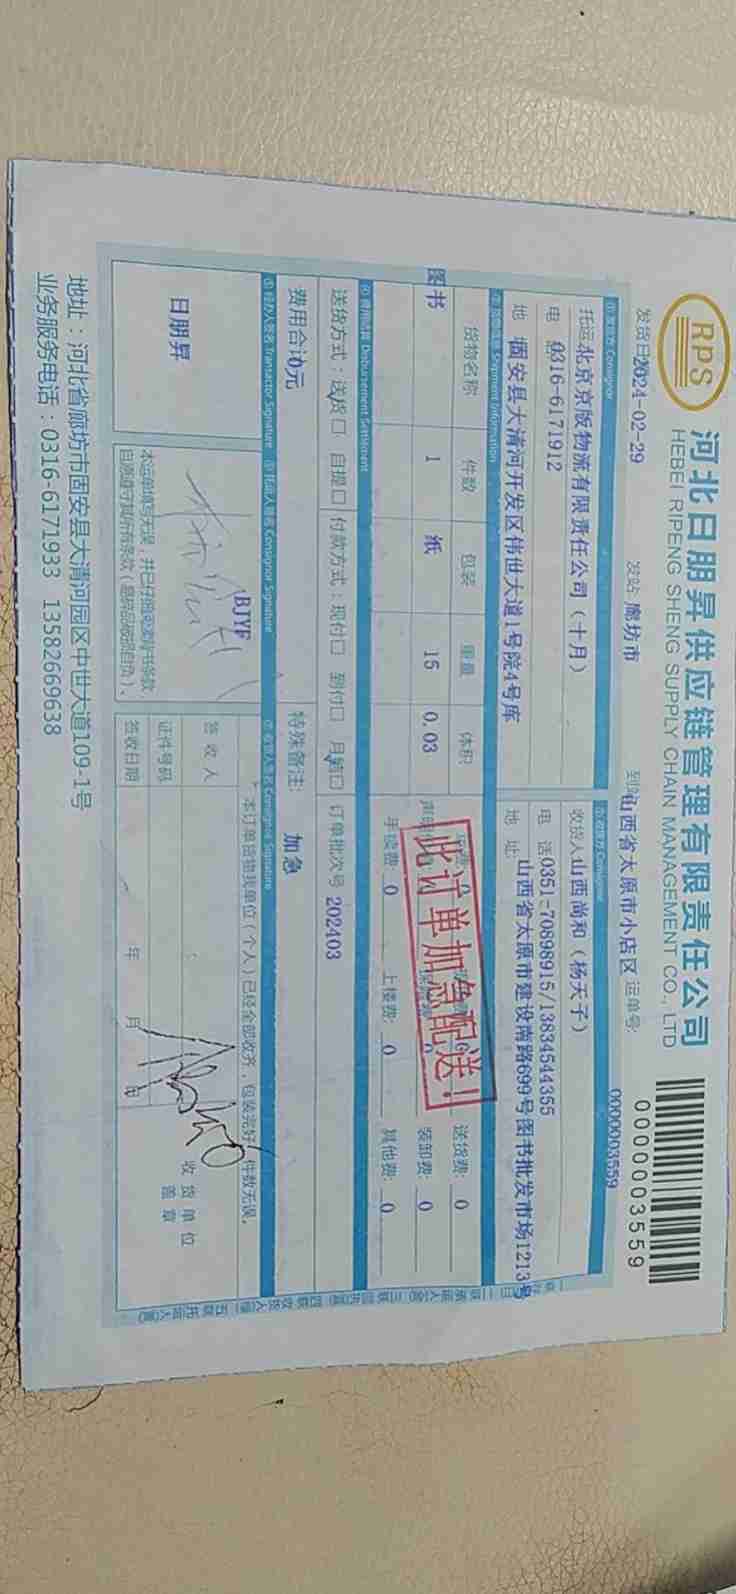 RPS
河北日朋昇供应链管理有限责任公司
HEBEI RIPENG SHENG SUPPLY CHAIN MANAGEMENT CO., LTD
0000003559
发货日 2024-02-29 发站 廊坊市 到站 山西省太原市小店区 运单号: 0000003559
托运 北京京版物流有限责任公司（十月）
电 0316-6171912
地 固安县大清河开发区伟世大道1号院4号库
收货人 山西尚和（杨天子）
电 话 0351-70898915/13834544355
地 址: 山西省太原市建设南路699号图书批发市场1213号
Shipment Information
货物名称 件数 包装 重量 体积
图书 1 纸 15 0.03
此订单加急配送！
送货费: 0
装卸费: 0
手续费: 0 上楼费: 0 其他费: 0
Disbursement Settlement
送货方式：送货 自提 付款方式：现付 到付 月 订单批次号 202403
费用合计0元 特殊备注: 加急
经办人签名 Transactor Signature Consignor Signature Consignee Signature
日朋昇
BJYF
本订单货物我单位（个人）已经全部收齐，包装完好，件数无误。
签收人
证件号码
签收日期 年 月 日
收货单位
盖章
地址：河北省廊坊市固安县大清河园区中世大道109-1号
业务服务电话：0316-6171933 13582669638